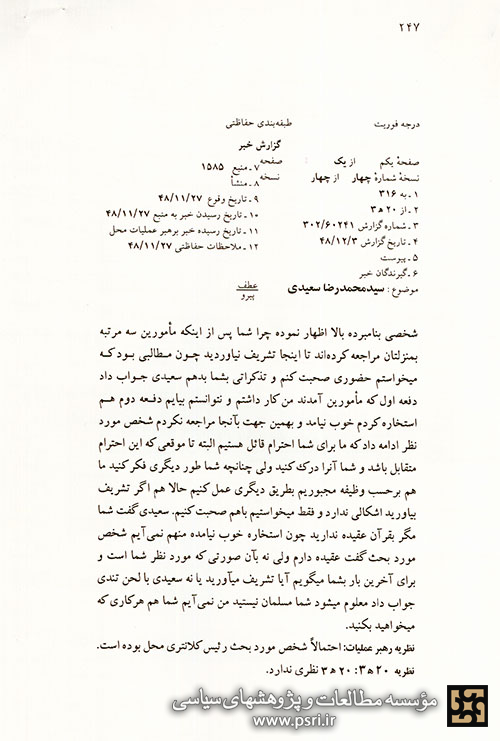 ۲۴۷
درجه فوریت
طبقه‌بندی حفاظتی
گزارش خبر
صفحهٔ یکم از یک : صفحه
نسخهٔ شمارهٔ چهار از چهار نسخه
۱ـ به ۳۱۶
۲ـ از ۲۰ ه‍ ۳
۳ـ شماره گزارش ۳۰۲/۶۰۲۴۱
۴ـ تاریخ گزارش ۴۸/۱۲/۳
۵ـ پیوست
۶ـ گیرندگان خبر
۷ـ منبع ۱۵۸۵
۸ـ منشأ
۹ـ تاریخ وقوع ۴۸/۱۱/۲۷
۱۰ـ تاریخ رسیدن خبر به منبع ۴۸/۱۱/۲۷
۱۱ـ تاریخ رسیده خبر برهبر عملیات محل
۱۲ـ ملاحظات حفاظتی ۴۸/۱۱/۲۷
موضوع : سیدمحمدرضا سعیدی
عطف
پیرو
شخصی بنامبرده بالا اظهار نموده چرا شما پس از اینکه مأمورین سه مرتبه
بمنزلتان مراجعه کرده‌اند تا اینجا تشریف نیاوردید چون مطالبی بود که
میخواستم حضوری صحبت کنم و تذکراتی بشما بدهم سعیدی جواب داد
دفعه اول که مأمورین آمدند من کار داشتم و نتوانستم بیایم دفعه دوم هم
استخاره کردم خوب نیامد و بهمین جهت بآنجا مراجعه نکردم شخص مورد
نظر ادامه داد که ما برای شما احترام قائل هستیم البته تا موقعی که این احترام
متقابل باشد و شما آنرا درک کنید ولی چنانچه شما طور دیگری فکر کنید ما
هم برحسب وظیفه مجبوریم بطریق دیگری عمل کنیم حالا هم اگر تشریف
بیاورید اشکالی ندارد و فقط میخواستیم باهم صحبت کنیم. سعیدی گفت شما
مگر بقرآن عقیده ندارید چون استخاره خوب نیامده منهم نمی‌آیم شخص
مورد بحث گفت عقیده دارم ولی نه بآن صورتی که مورد نظر شما است و
برای آخرین بار بشما میگویم آیا تشریف میآورید یا نه سعیدی با لحن تندی
جواب داد معلوم میشود شما مسلمان نیستید من نمی‌آیم شما هم هرکاری که
میخواهید بکنید.
نظریه رهبر عملیات: احتمالاً شخص مورد بحث رئیس کلانتری محل بوده است.
نظریه ۲۰ ه‍ ۳: ۲۰ ه‍ ۳ نظری ندارد.
مؤسسه مطالعات و پژوهشهای سیاسی
www.psri.ir